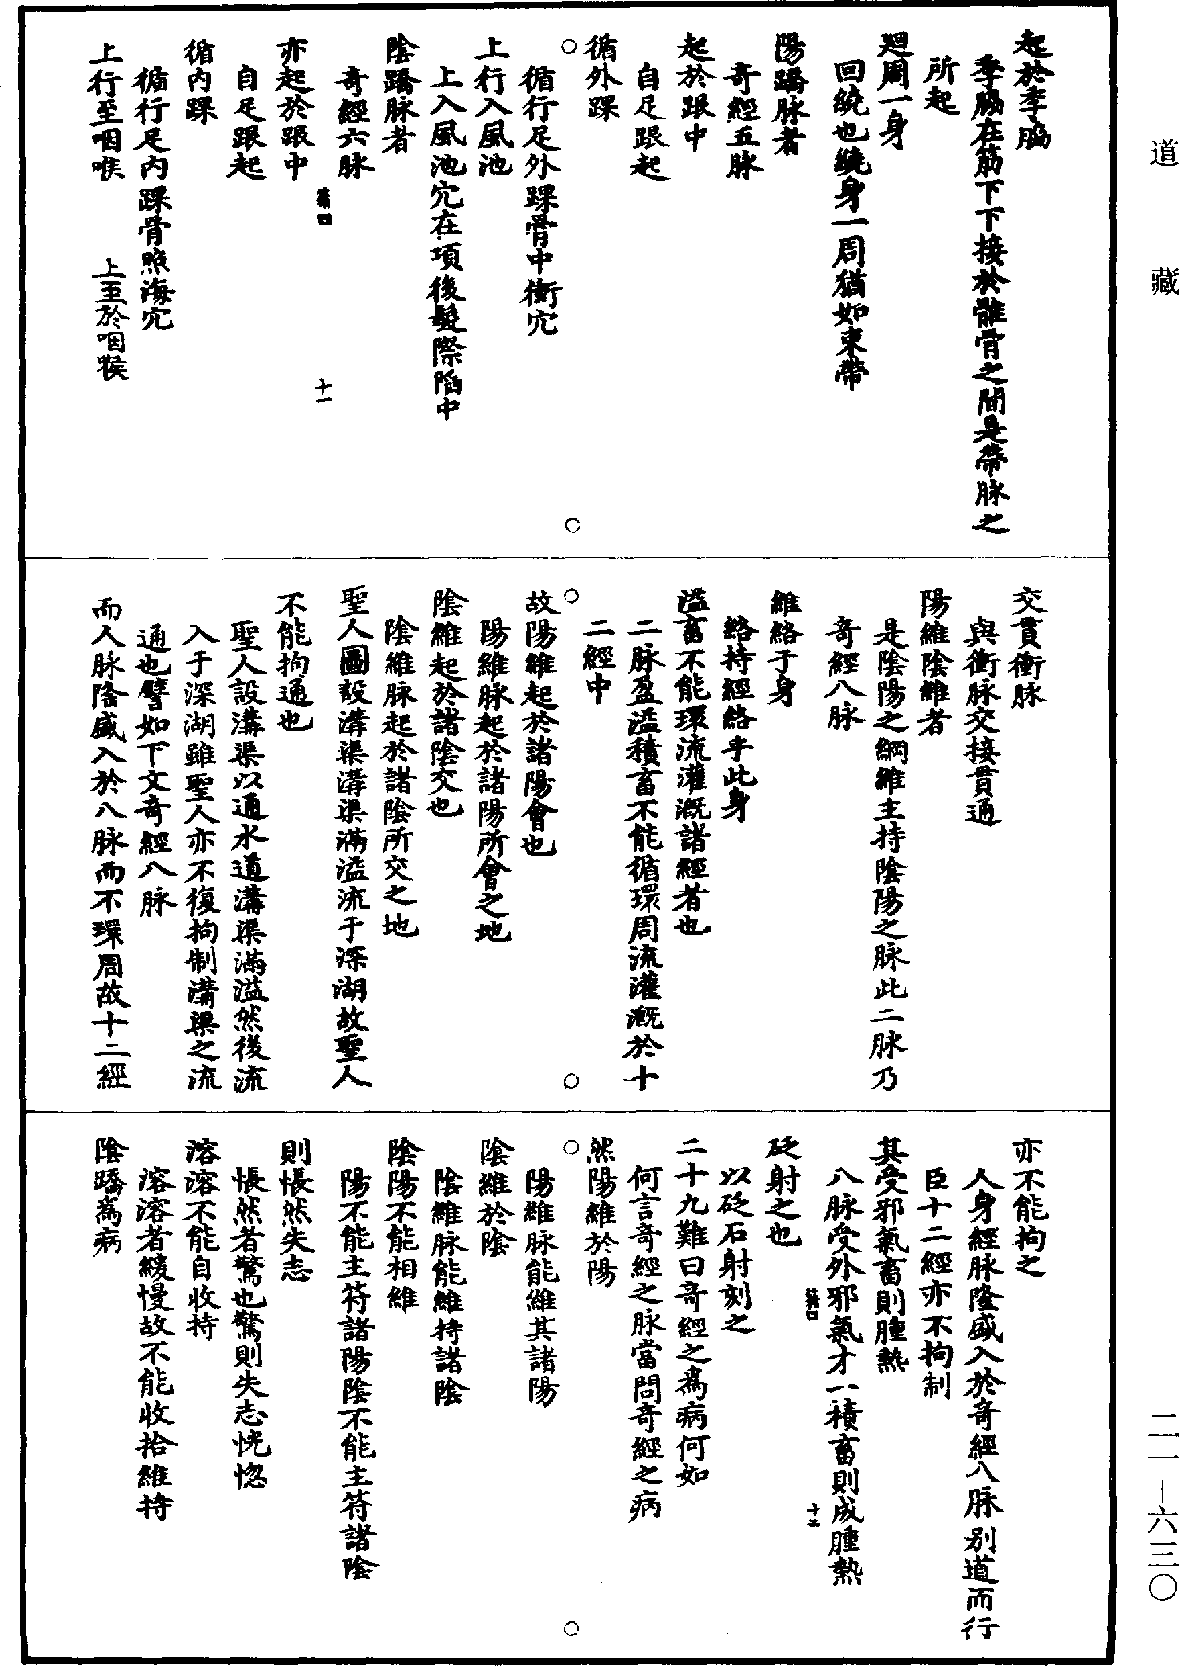 道藏
二一—六三〇
起於季脇
季脇在筋下下接於髖骨之間是帶脉之
所起
廻周一身
回繞也繞身一周猶如束帶
陽蹻脉者
奇經五脉
起於跟中
自足跟起
循外踝
循行足外踝骨中衝穴
上行入風池
上入風池穴在項後髮際陷中
陰蹻脉者
奇經六脉
十一
亦起於跟中
自足跟起
循內踝
循行足內踝骨照海穴
上行至咽喉
上至於咽喉
交貫衝脉
與衝脉交接貫通
陽維陰維者
是陰陽之綱維主持陰陽之脉此二脉乃
奇經八脉
維絡于身
絡持經絡乎此身
溢畜不能環流灌溉諸經者也
二脉盈溢積畜不能循環周流灌溉於十
二經中
故陽維起於諸陽會也
陽維脉起於諸陽所會之地
陰維起於諸陰交也
陰維脉起於諸陰所交之地
聖人圖設溝渠溝渠滿溢流于深湖故聖人
不能拘通也
聖人設溝渠以通水道溝渠滿溢然後流
入于深湖雖聖人亦不復拘制溝渠之流
通也譬如下文奇經八脉
而人脉隆盛入於八脉而不環周故十二經
亦不能拘之
人身經脉隆盛入於奇經八脉别道而行
臣十二經亦不拘制
其受邪氣畜則腫熱
八脉受外邪氣才一積畜則成腫熱
十二
砭射之也
以砭石射刻之
二十九難曰奇經之為病何如
何言奇經之脉當問奇經之病
然陽維於陽
陽維脉能維其諸陽
陰維於陰
陰維脉能維持諸陰
陰陽不能相維
陽不能主符諸陽陰不能主符諸陰
則悵然失志
悵然者驚也驚則失志恍惚
溶溶不能自收持
溶溶者緩慢故不能收拾維持
陰蹻為病